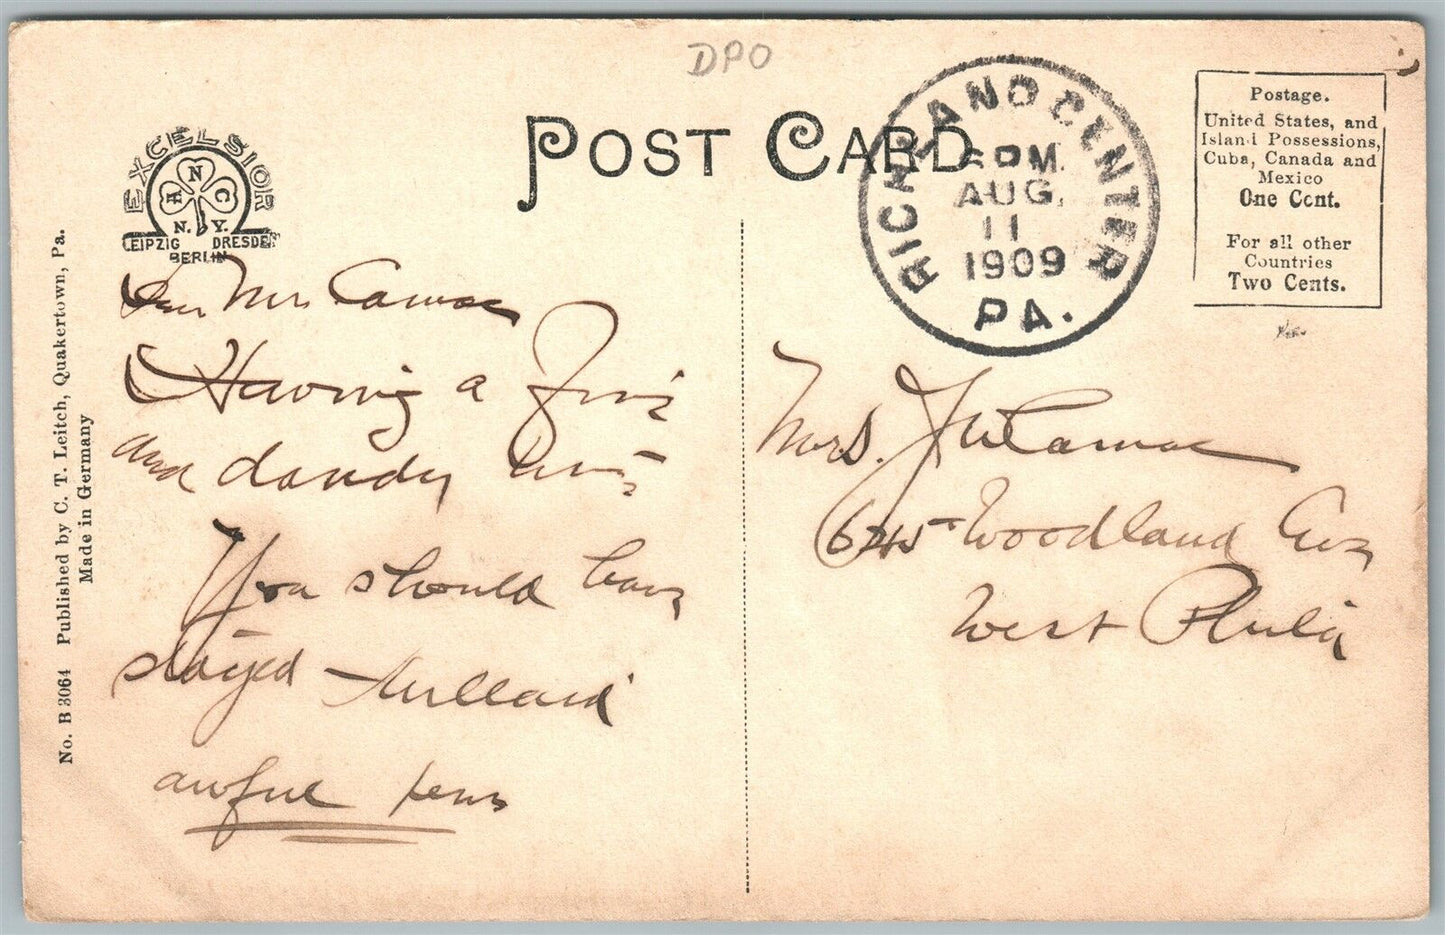 DPO
POST CARD
EXCELSIOR
ANC
N. Y.
LEIPZIG DRESDEN
BERLIN
RICHLAND CENTER
6 PM.
AUG.
11
1909
PA.
Postage.
United States, and
Island Possessions,
Cuba, Canada and
Mexico
One Cent.
For all other
Countries
Two Cents.
No. B 3064 Published by C. T. Leitch, Quakertown, Pa.
Made in Germany
Dear Mrs Camac
Having a fine
and dandy time
You should have
stayed
awful pen
Mrs. J W Camac
645 Woodland Ave
West Phila